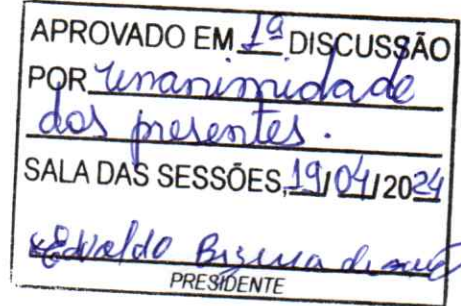 APROVADO EM 1ª DISCUSSÃO
POR unanimidade
dos presentes.
SALA DAS SESSÕES, 19/04/2024
Edvaldo Bezerra de
PRESIDENTE